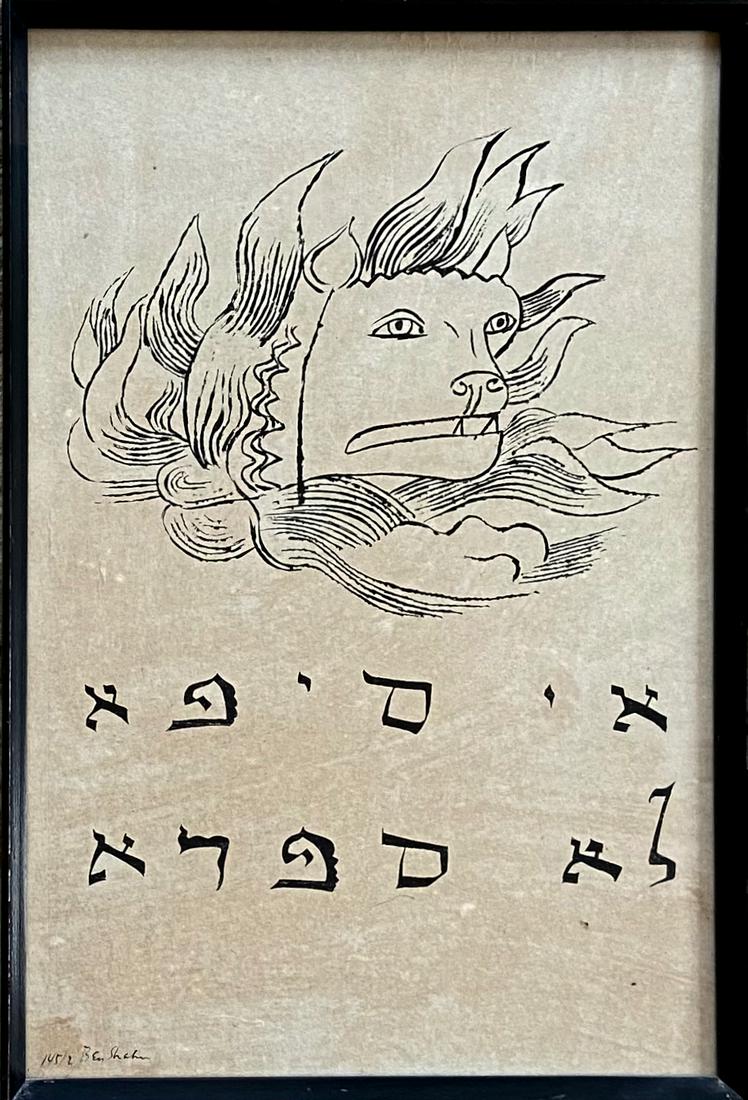 אי סיפא
לא ספרא
145/2 Ben Shahn